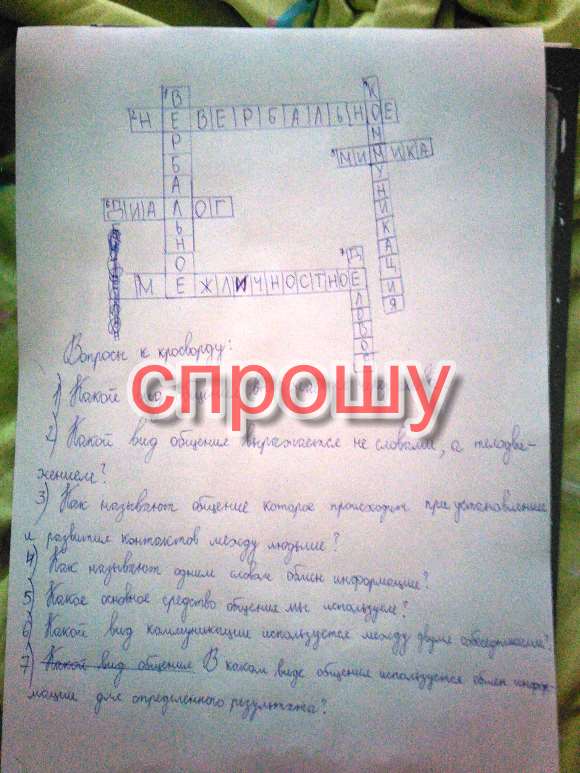 ВЕРБАЛЬНОЕ
НЕВЕРБАЛЬНОЕ
КОММУНИКАЦИЯ
МИМИКА
ДИАЛОГ
МЕЖЛИЧНОСТНОЕ
ДЕЛОВОЕ
Вопросы к кросворду:
спрошу
1) Какой
2) Какой вид общения выражается не словами, а телодви-
жением?
3) Как называют общение которое происходит при установлении
и развитии контактов между людьми?
4) Как называют одним словом обмен информацией?
5) Какое основное средство общения мы используем?
6) Какой вид коммуникации используется между двумя собеседниками?
7) Какой вид общения В каком виде общения используется обмен инфор-
мации для определенного результата?